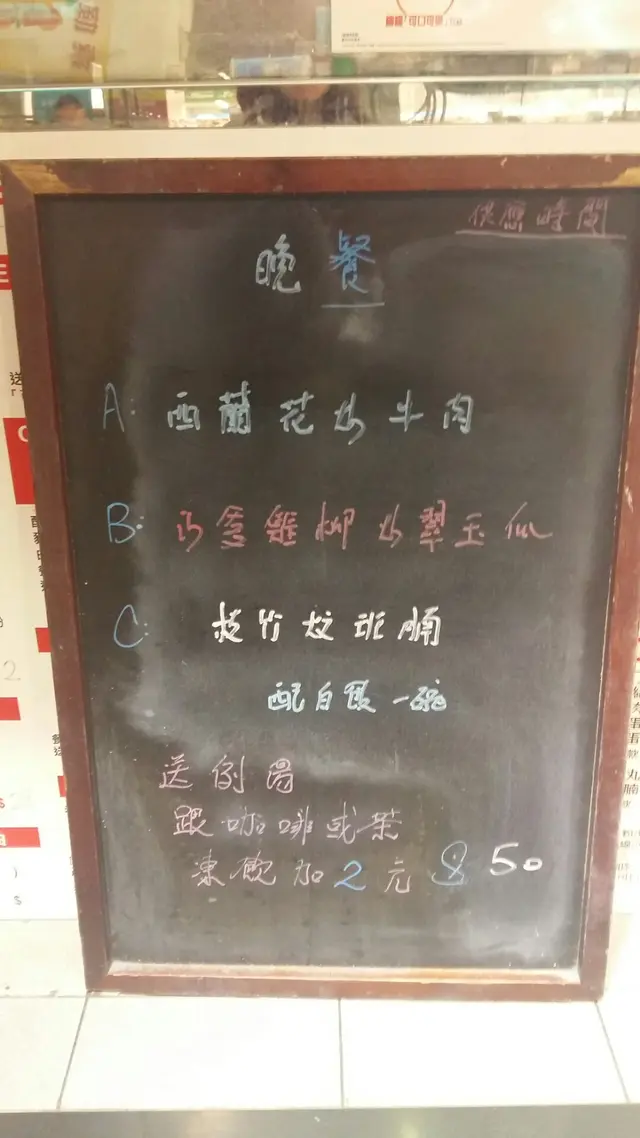 供應時間
晚餐
A: 西蘭花炒牛肉
B: 巧拿雞柳炒翠玉瓜
C: 枝竹炆班腩
配白飯一碗
送例湯
跟咖啡或茶
凍飲加2元 $50